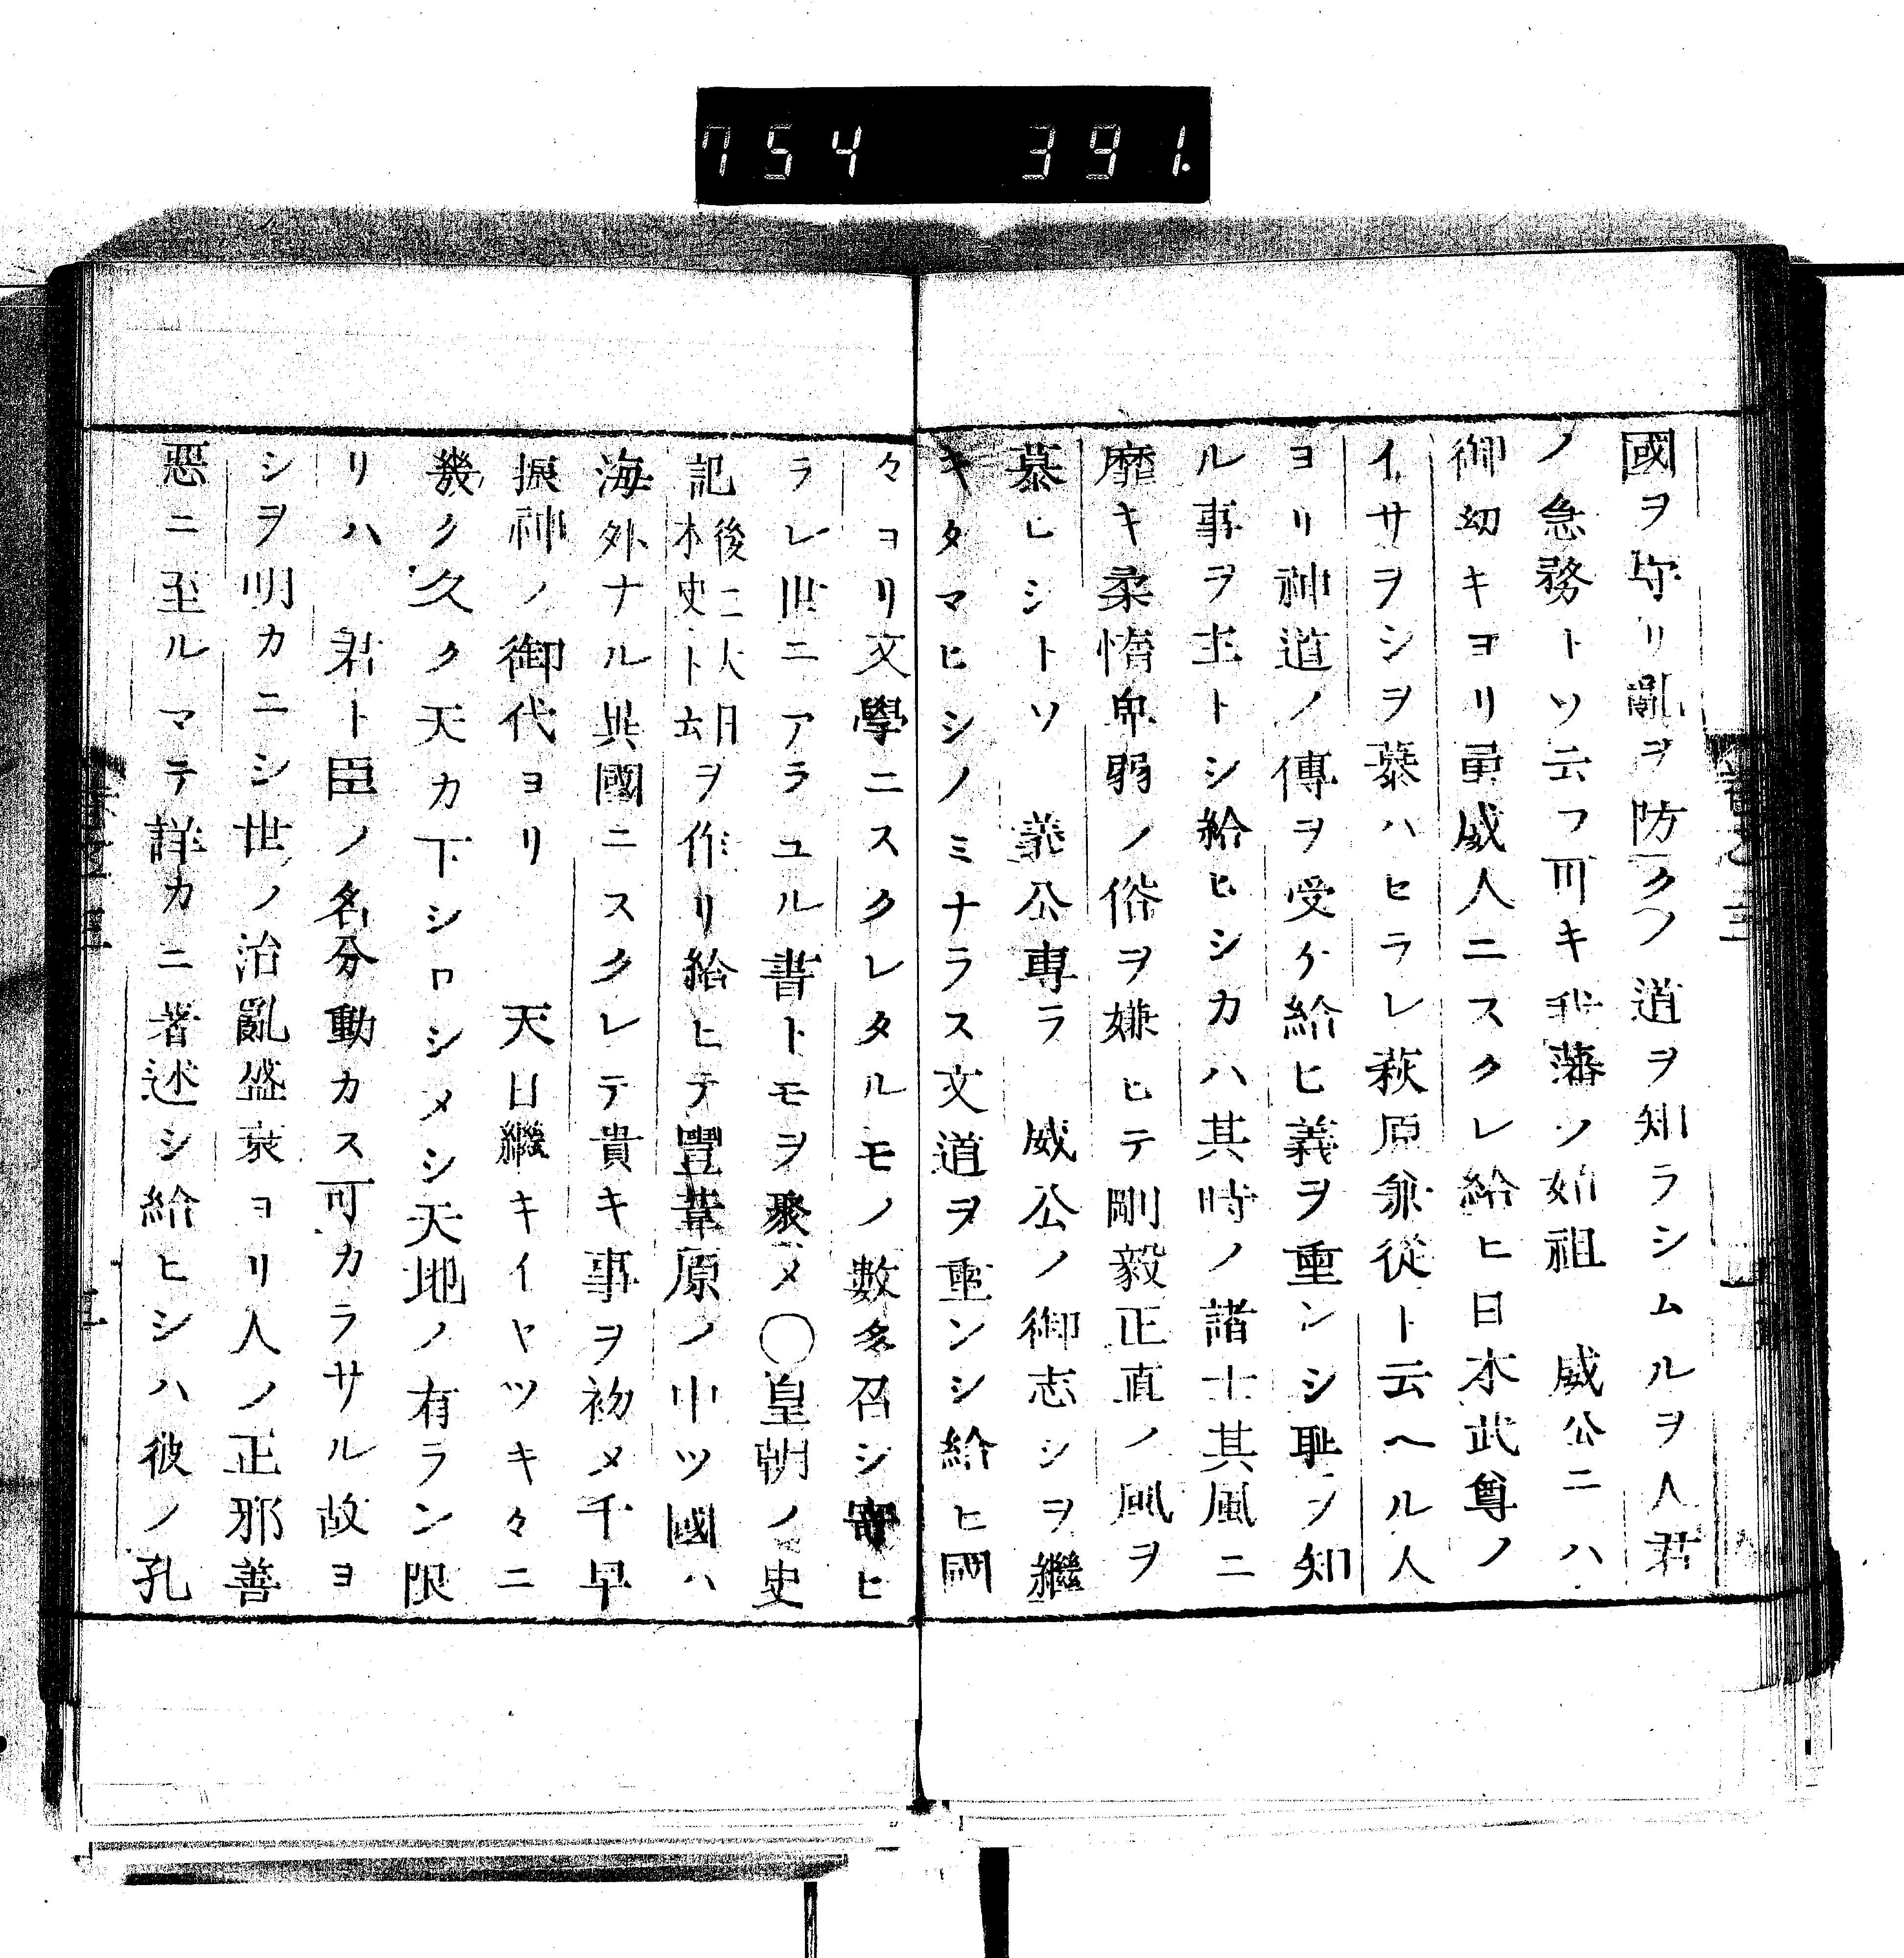 754 391.
國ヲ守リ亂ヲ防クノ道ヲ知ラシムルヲ人君
ノ急務トソ云フ可キ我藩ノ始祖　威公ニハ
御幼キヨリ勇威人ニスクレ給ヒ日本武尊ノ
イサヲシヲ慕ハセラレ萩原兼從ト云ヘル人
ヨリ神道ノ傳ヲ受ケ給ヒ義ヲ重ンシ耻ヲ知
ル事ヲ主トシ給ヒシカハ其時ノ諸士其風ニ
靡キ柔惰卑弱ノ俗ヲ嫌ヒテ剛毅正直ノ風ヲ
慕ヒシトソ　義公專ラ　威公ノ御志シヲ繼
キタマヒシノミナラス文道ヲ重ンシ給ヒ國
々ヨリ文學ニスクレタルモノ數多召シ寄ヒ
ラレ世ニアラユル書トモヲ聚メ〇皇朝ノ史
記後ニ大日本史ト云ヲ作リ給ヒテ豐葦原ノ中ツ國ハ
海外ナル異國ニスクレテ貴キ事ヲ初メ千早
振神ノ御代ヨリ　天日繼キイヤツキ々ニ
幾ク久ク天カ下シロシメシ天地ノ有ラン限
リハ　君ト臣ノ名分動カス可カラサル故ヨ
シヲ明カニシ世ノ治亂盛衰ヨリ人ノ正邪善
惡ニ至ルマテ詳カニ著述シ給ヒシハ彼ノ孔